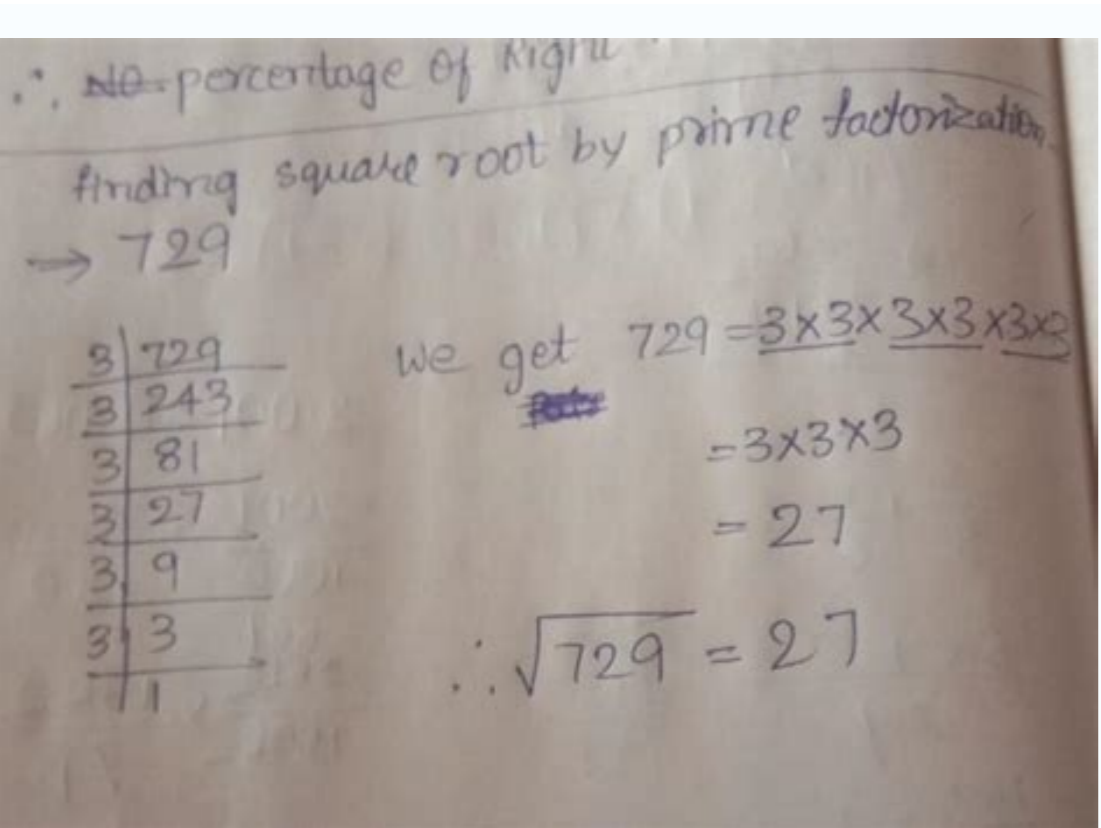 ∴ No percentage of Right
finding square root by prime factorization.
→ 729
3 | 729
3 | 243
3 | 81
3 | 27
3 | 9
3 | 3
1
we get 729 = 3×3×3×3×3×3
= 3×3×3
= 27
∴ √729 = 27